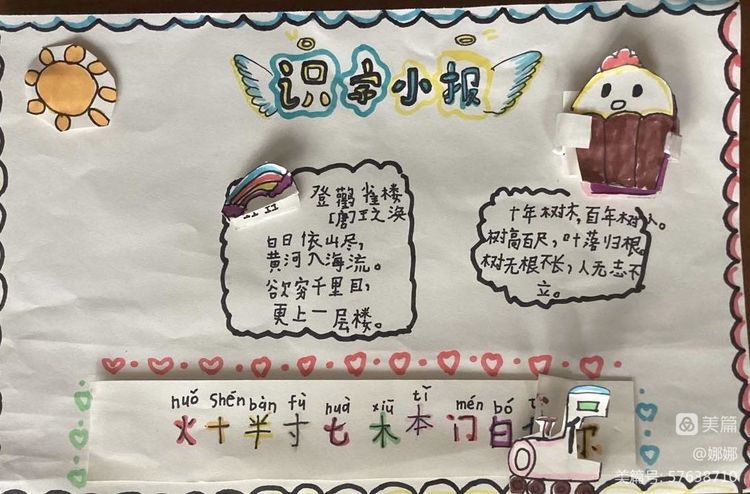 识字小报
登鹳雀楼
[唐]王之涣
白日依山尽，
黄河入海流。
欲穷千里目，
更上一层楼。
十年树木，百年树人。
树高百尺，叶落归根。
树无根不长，人无志不
立。
huǒ shén bàn fù huà xiū tǐ mén bó
火十半寸七木本门白 你
美篇
@娜娜
美篇号: 57638710